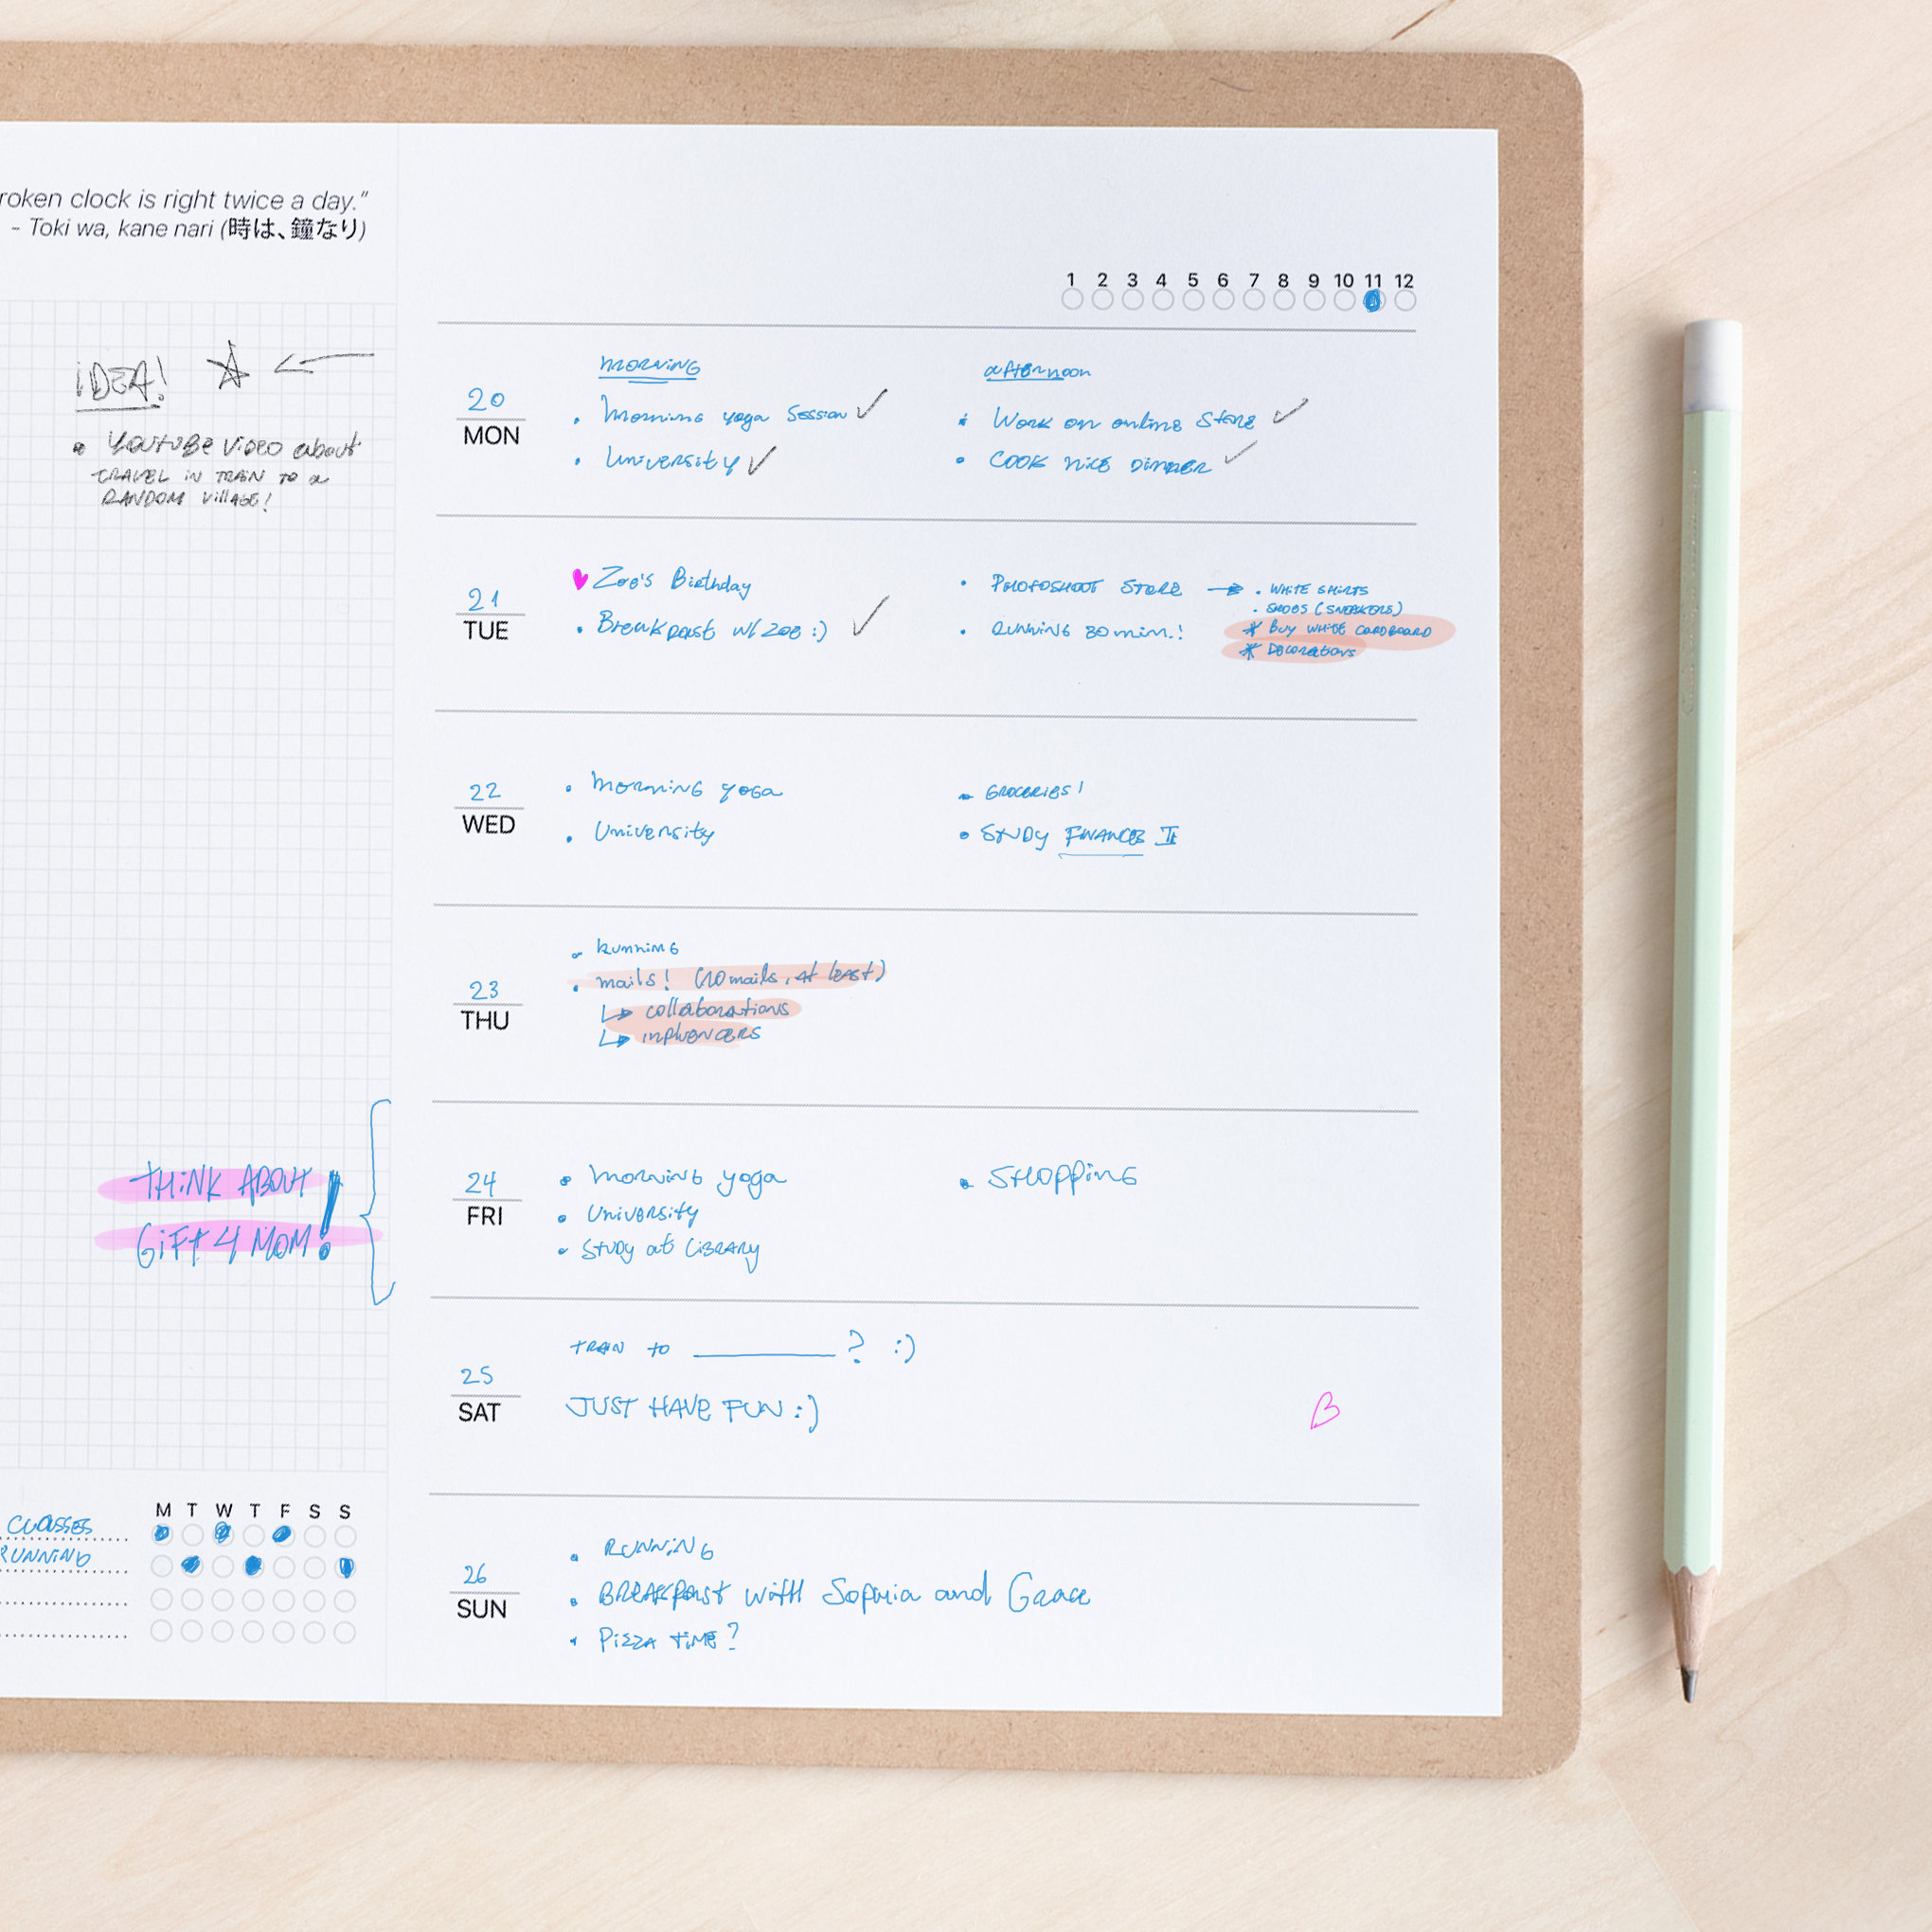 roken clock is right twice a day."
- Toki wa, kane nari (時は、鐘なり)
iDEA!
• YOUTUBE ViDEO about
TRAVEL iN TRAiN TO a
RANDOM VillAGE!
THiNK ABOUT
GiFt 4 MOM!
M T W T F S S
CLASSES
RUNNiNG
1 2 3 4 5 6 7 8 9 10 11 12
20
MON
MORNiNG
• Morning yoga Session ✓
• University ✓
afternoon
• Work on online Store ✓
• COOK NiCE DiNNER ✓
21
TUE
♥ Zoe's Birthday
• Breakfast w/ Zoe :) ✓
• PHOTOSHOOT STORE → • WHiTE SHiRTS
• SHOES (SNEAKERS)
* BUY WHiTE CARDBOARD
* DECORatioNS
• RUNNiNG 30 min.!
22
WED
• MORNiNG yOGa
• UNiVERSity
• GROCERiES!
• STUDY FiNANCES II
23
THU
• RUNNiNG
• mails! (10 mails, at least)
↳ collaborations
↳ iNFlUENCERS
24
FRI
• MORNiNG yoga
• UNiVERSity
• STUDY at LiBRARY
• SHOppiNG
25
SAT
TRAiN TO ________? :)
JUST HAVE FUN :)
26
SUN
• RUNNiNG
• BREAKFAST WitH Sophia and Grace
• PiZZA TiME?